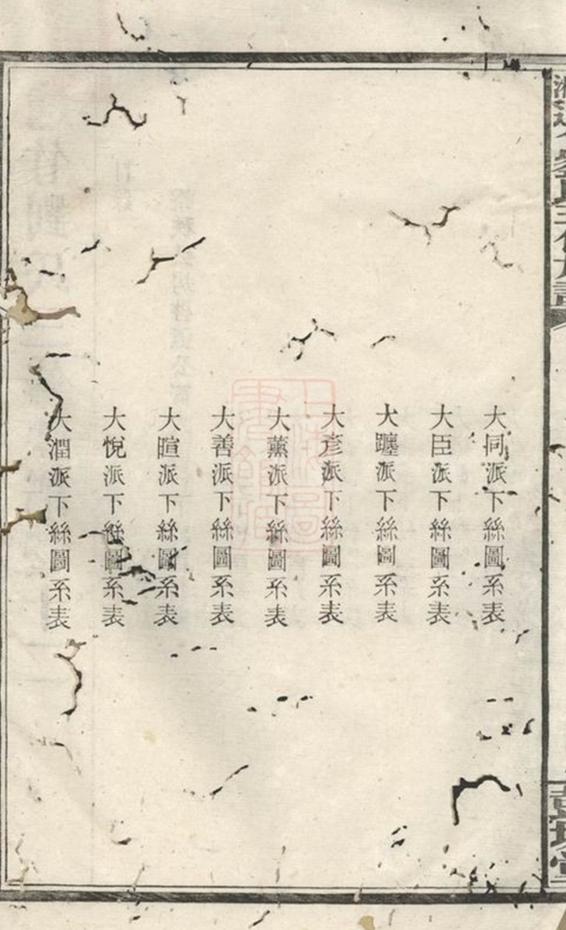 大同派下絲圖系表
大臣派下絲圖系表
大躔派下絲圖系表
大彥派下絲圖系表
大薰派下絲圖系表
大善派下絲圖系表
大暄派下絲圖系表
大悅派下絲圖系表
大潤派下絲圖系表